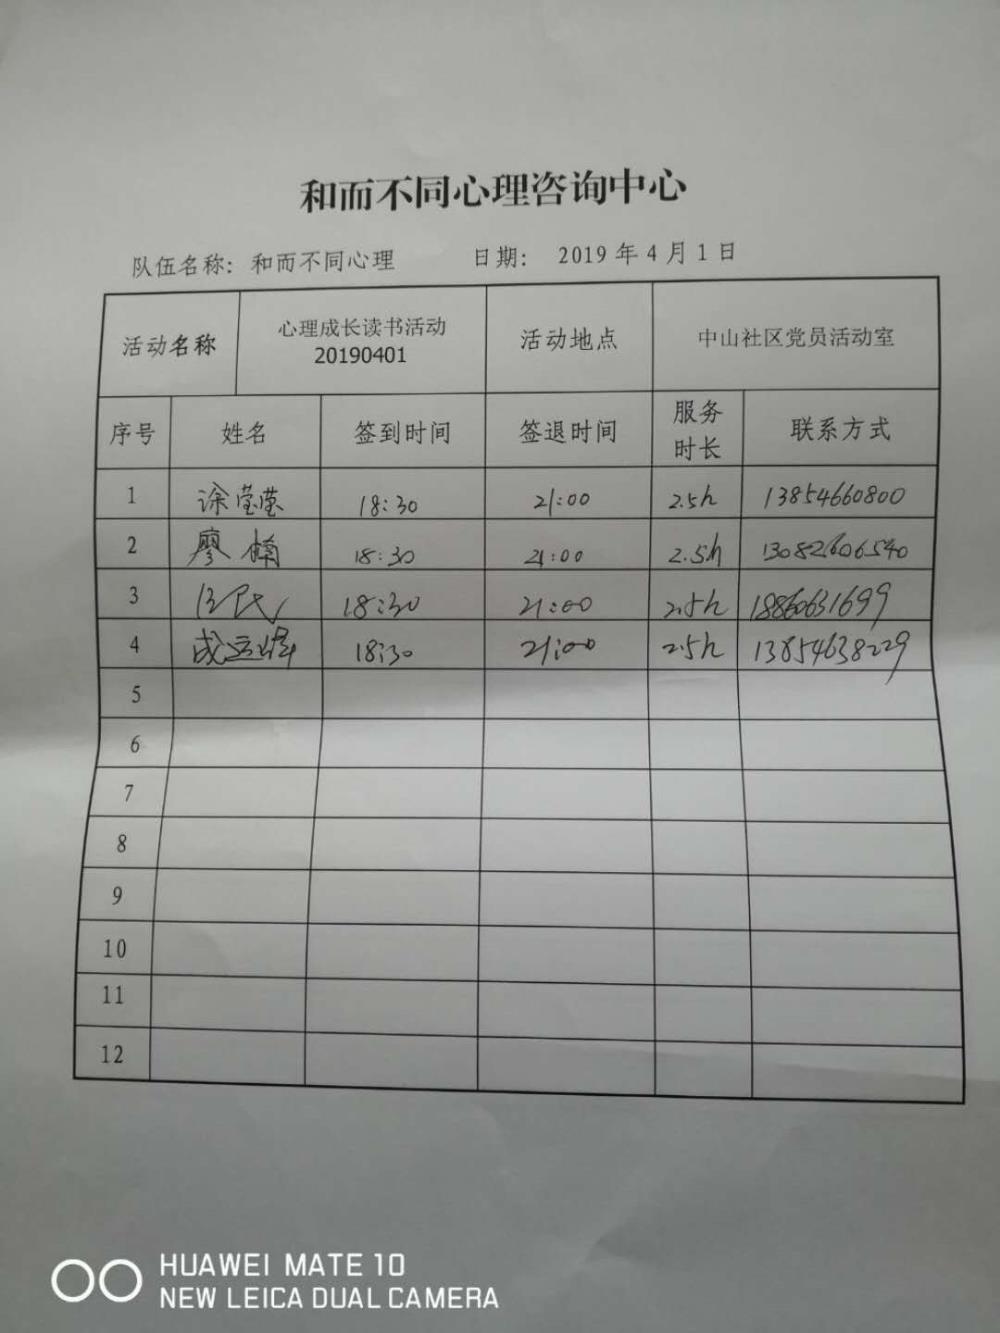 和而不同心理咨询中心
队伍名称: 和而不同心理 日期: 2019 年 4 月 1 日
活动名称 心理成长读书活动 20190401 活动地点 中山社区党员活动室
序号 姓名 签到时间 签退时间 服务时长 联系方式
1 徐莹莹 18:30 21:00 2.5h 13854660800
2 廖楠 18:30 21:00 2.5h 13082606540
3 18:30 21:00 2.5h 18860631699
4 18:30 21:00 2.5h 13854638229
5
6
7
8
9
10
11
12
HUAWEI MATE 10
NEW LEICA DUAL CAMERA